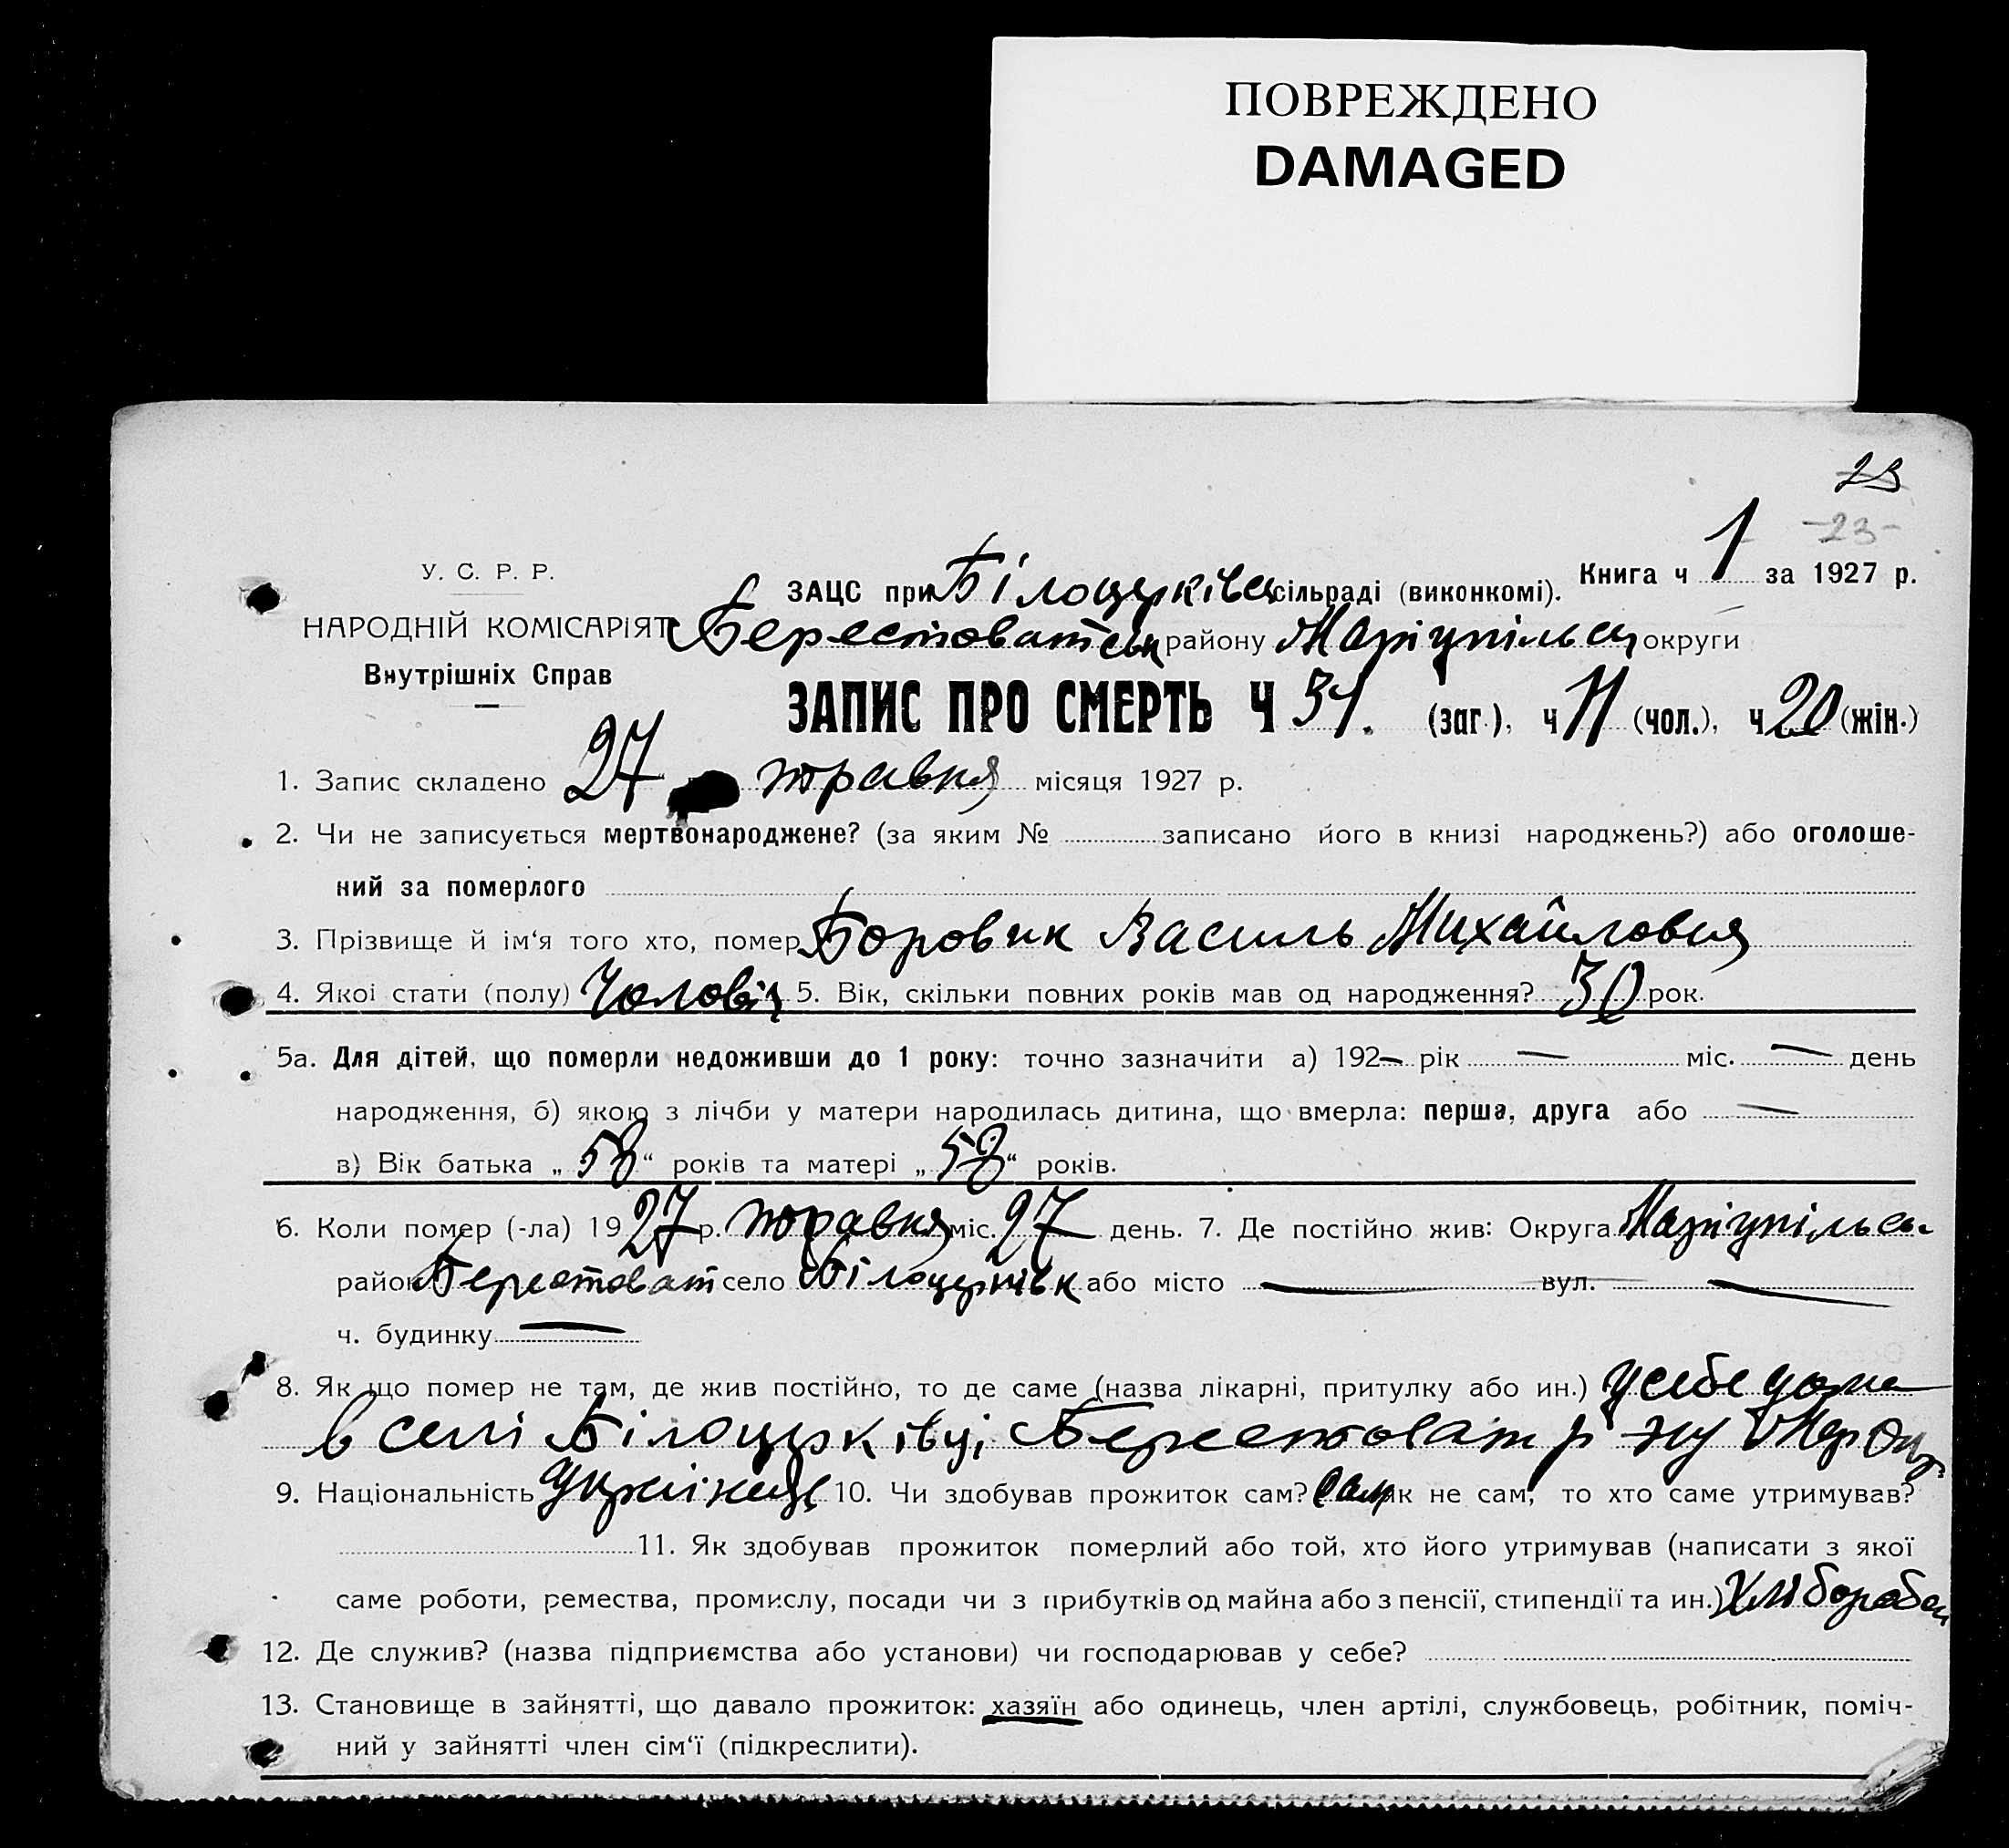 ПОВРЕЖДЕНО
DAMAGED
23
-23-
У. С. Р. Р.
НАРОДНІЙ КОМІСАРІЯТ
Внутрішніх Справ
Книга ч 1 за 1927 р.
ЗАЦС при Білоцерківец сільраді (виконкомі).
Берестоватськ району Маріупільськ округи
ЗАПИС ПРО СМЕРТЬ Ч 31. (заг.), ч 11 (чол.), ч 20 (жін.)
1. Запис складено 27 травня місяця 1927 р.
2. Чи не записується мертвонароджене? (за яким № записано його в книзі народжень?) або оголоше-
ний за померлого
3. Прізвище й ім'я того хто, помер Боровик Василь Михайлович
4. Якої стати (полу) Чоловіч 5. Вік, скільки повних років мав од народження? 30 рок.
5а. Для дітей, що померли недоживши до 1 року: точно зазначити а) 192— рік — міс. — день
народження, б) якою з лічби у матери народилась дитина, що вмерла: перша, друга або —
в) Вік батька „58“ років та матері „58“ років.
6. Коли помер (-ла) 1927 р. травня міс. 27 день. 7. Де постійно жив: Округа Маріупільсь.
район Берестоват село Білоцерківк або місто — вул. —
ч. будинку —
8. Як що помер не там, де жив постійно, то де саме (назва лікарні, притулку або ин.) у себе дома
в селі Білоцерківці Берестоват р-ну Мар Окр
9. Національність Українець 10. Чи здобував прожиток сам? Сам як не сам, то хто саме утримував?
11. Як здобував прожиток померлий або той, хто його утримував (написати з якої
саме роботи, ремества, промислу, посади чи з прибутків од майна або з пенсії, стипендії та ин.) Хлібороб
12. Де служив? (назва підприємства або установи) чи господарював у себе?
13. Становище в зайнятті, що давало прожиток: хазяїн або одинець, член артілі, службовець, робітник, поміч-
ний у зайнятті член сім'ї (підкреслити).